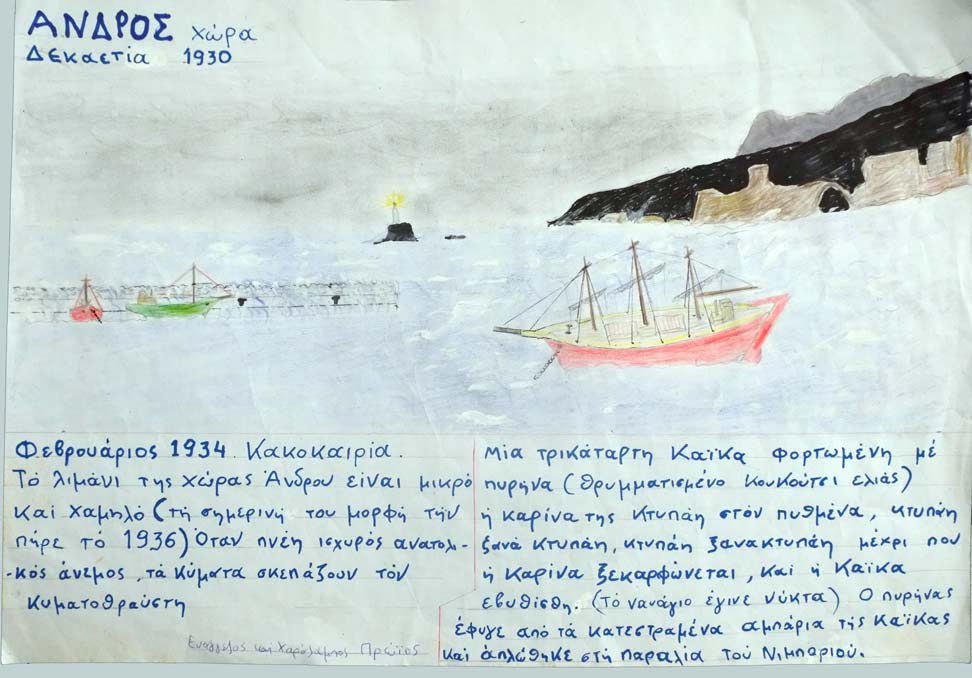 ΑΝΔΡΟΣ χώρα
Δεκαετία 1930
Φεβρουάριος 1934. Κακοκαιρία.
Τό λιμάνι της χώρας Άνδρου είναι μικρό
και χαμηλό (τή σημερινή του μορφή τήν
πήρε τό 1936) Όταν πνέη ισχυρός ανατολι-
-κός άνεμος, τά κύματα σκεπάζουν τόν
κυματοθραύστη
Ευάγγελος και Χαράλαμπος Πρώϊος
Μία τρικάταρτη Καΐκα φορτωμένη μέ
πυρήνα (θρυμματισμένο κουκούτσι ελιάς)
ή καρίνα της κτυπάη στόν πυθμένα, κτυπάη
ξανά κτυπάη, κτυπάη ξανακτυπάη μέχρι που
ή καρίνα ξεκαρφώνεται, και ή Καΐκα
εβυθίσθη. (Τό ναυάγιο έγινε νύκτα) Ο πυρήνας
έφυγε από τά κατεστραμένα αμπάρια τής Καΐκας
και άπλώθηκε στή παραλία τού Νιμποριού.